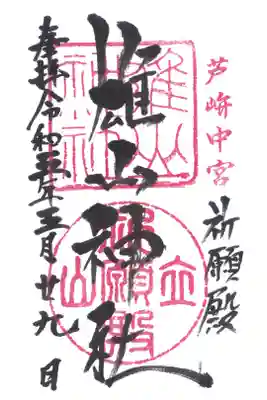 芦峅中宮
祈願殿
雄山神社
奉拝 令和五年三月廿九日
雄山神社
立山
祈願殿